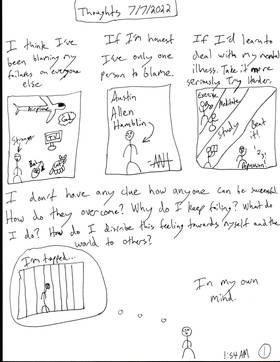 Thoughts 7/7/2022
I think I've
been blaming my
failures on everyone
else
Airplane
God
Stranger
If I'm honest
I've only one
person to blame.
Austin
Allen
Hamblin
If I'd learn to
deal with my mental
illness. Take it more
seriously. Try harder.
Exercise
Meditate
Study
Beat it!
I don't have any clue how anyone can be successful.
How do they overcome? Why do I keep failing? What do
I do? How do I discribe this feeling towards myself and the
world to others?
I'm trapped...
In my own
mind.
1:54 AM
1